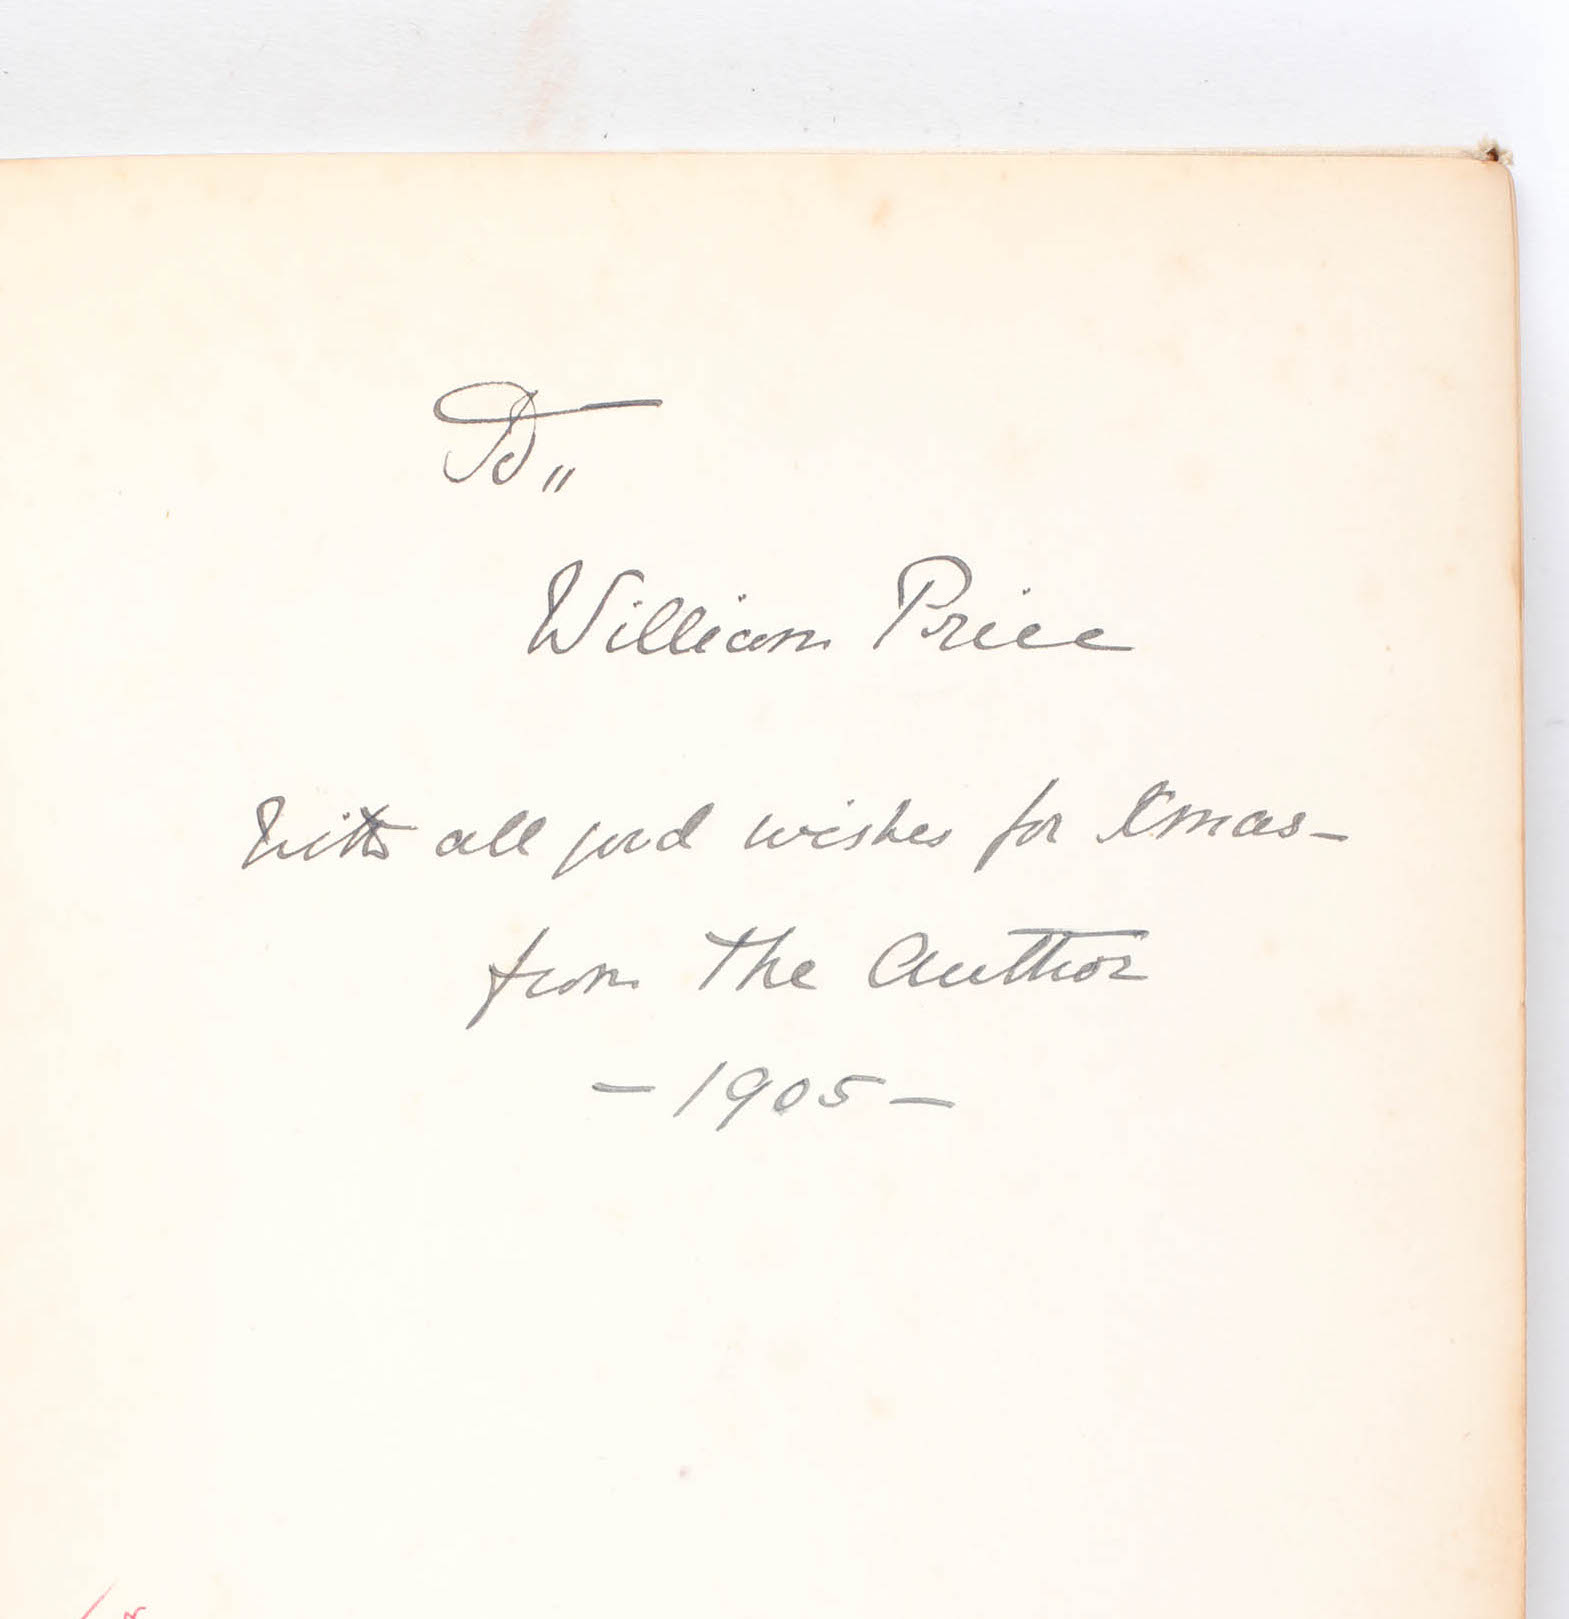 To "
William Price
With all good wishes for Xmas -
from The Author
- 1905 -